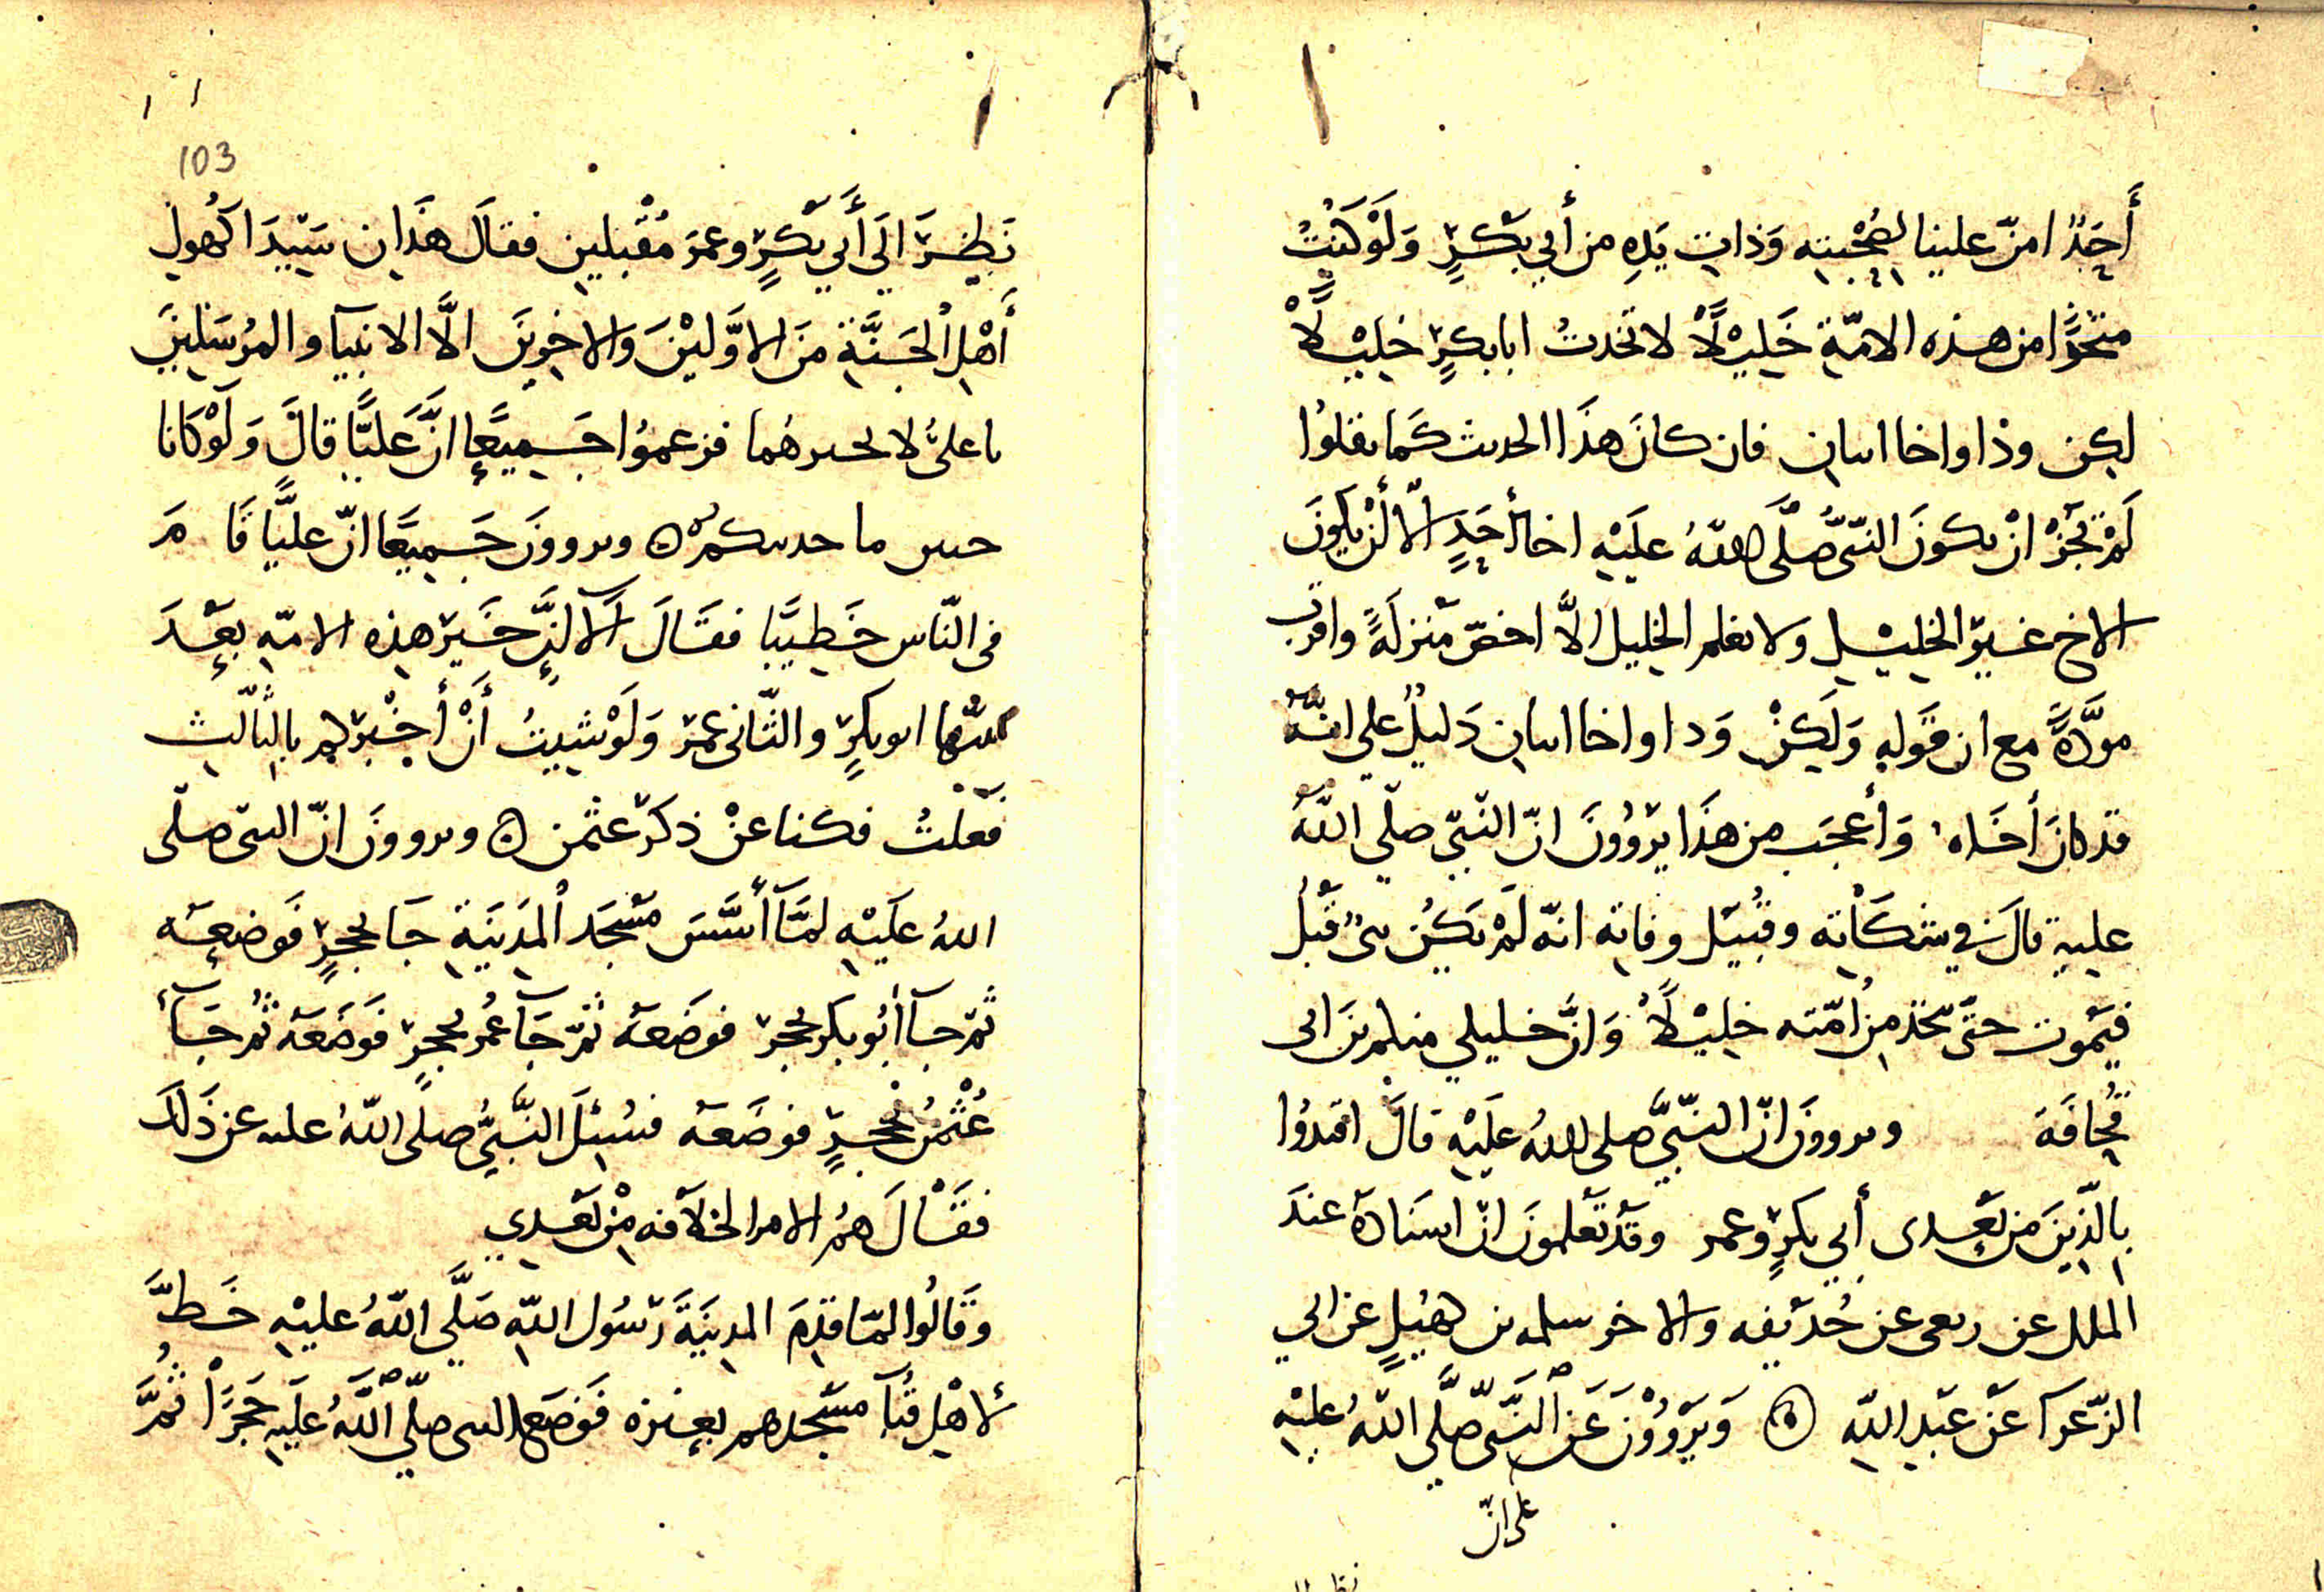 أَحَدٌ امنّ علينا لصُحْبته وَذات يَدِهِ من أبي بَكرٍ وَلَوْ كنْتُ
متخذًا من هذه الامّة خَليْلًا لاتخدتُ ابا بكرٍ خليْلًا
لكن ودّا واخا اىمان فان كانَ هذَا الحدىث كَما ىقلوا
لَمْ تَجُزْ انْ ىكونَ النّبىُّ صَلَّى اللهُ علَيْهِ اخا أحَدٍ الّا أنْ يكونَ
الاخ غيرَ الخليْل ولا نعلم الخليل الاَّ اخصّ مَنزلَةً واقرب
مودَّةً مع ان قَولهِ وَلَكِنْ وَدا واخا اىمان دَليلٌ علي انّهُ
قد كانَ أخَاه وَأعجَب من هذَا يرْوُونَ انّ النّبيّ صلّي اللّهُ
عليهِ قالَ في شَكَاته وقُبيَل وفاته انّه لَمْ يَكُن نبىٌّ قَبْلُ
فيَمُوت حتّى يتخذ من امّته خليْلًا وَانَّ خليلي منكم بنَ ابى
قُحافَة وىروونَ انّ النّبيَّ صلى اللهُ علَيْهِ قالَ اقتدُوا
بالّذينَ من بَعْدى أبي بكرٍ وعمر وقدْ تَعلمونَ انّ اسنَادهُ عندَ
الملك عن ربعى عن حُذيفه والاخر سلمه بن كهَيْلٍ عن ابي
الزّعرآ عَنْ عَبْدِ اللّهِ وَيَرْوُوْنَ عَنِ النّبىّ صَلَّي اللّهُ عليْهِ
على انّ
103
نَظرَ الَي أَبي بَكْرٍ وعمَرَ مُقْبلين فقالَ هذَانِ سَيّدَا كهُولِ
أَهْلِ الجَنَّةِ منَ الاوَّليْنَ والاخرينَ الَّا الانبيآ والمُرسَلينَ
ىا علىُّ لا تخبرهُما فزعموُا جَميعًا انَّ عَليًّا قالَ وَلَوْ كَانا
حيين ما حدىتكمْ وىروونَ جَميعًا انّ عليًّا قَا مَ
فى النّاس خَطيبًا فقَالَ آلَا انَّ خَيرَ هذه الامّه بعْدَ
نبيّها ابو بكرٍ والثّانى عمَر وَلَوْ شيتُ أنْ أخْبركم بالثّالث
فعَلتُ فكنا عنْ ذكر عثمن وىروونَ انّ النبىّ صلّى
اللهُ علَيْهِ لمّا أسَّسَ مَسْجد المَدينَةِ جَا بحجرٍ فَوضعَه
ثمّ جآ أبُو بكر بحجرٍ فوضَعَه ثمّ جَآ عُمر بحجرٍ فوَضَعَه ثمّ جَآ
عُثْمنُ بحجرٍ فوضَعَه فسُئِلَ النَّبيُّ صلى اللّهُ علىه عن ذَلكَ
فقَالَ همُ الامرا الخلافه مِنْ بَعْدي
وقَالُوا لمّا قدِمَ المدينَةَ رَسُول اللّهِ صَلَّي اللّهُ عليْهِ خَطَّ
لاهْلِ قبَآ مَسْجدهم بعنزه فَوضَع النبى صلّي اللّهُ علَيهِ حَجَرًا ثمُّ